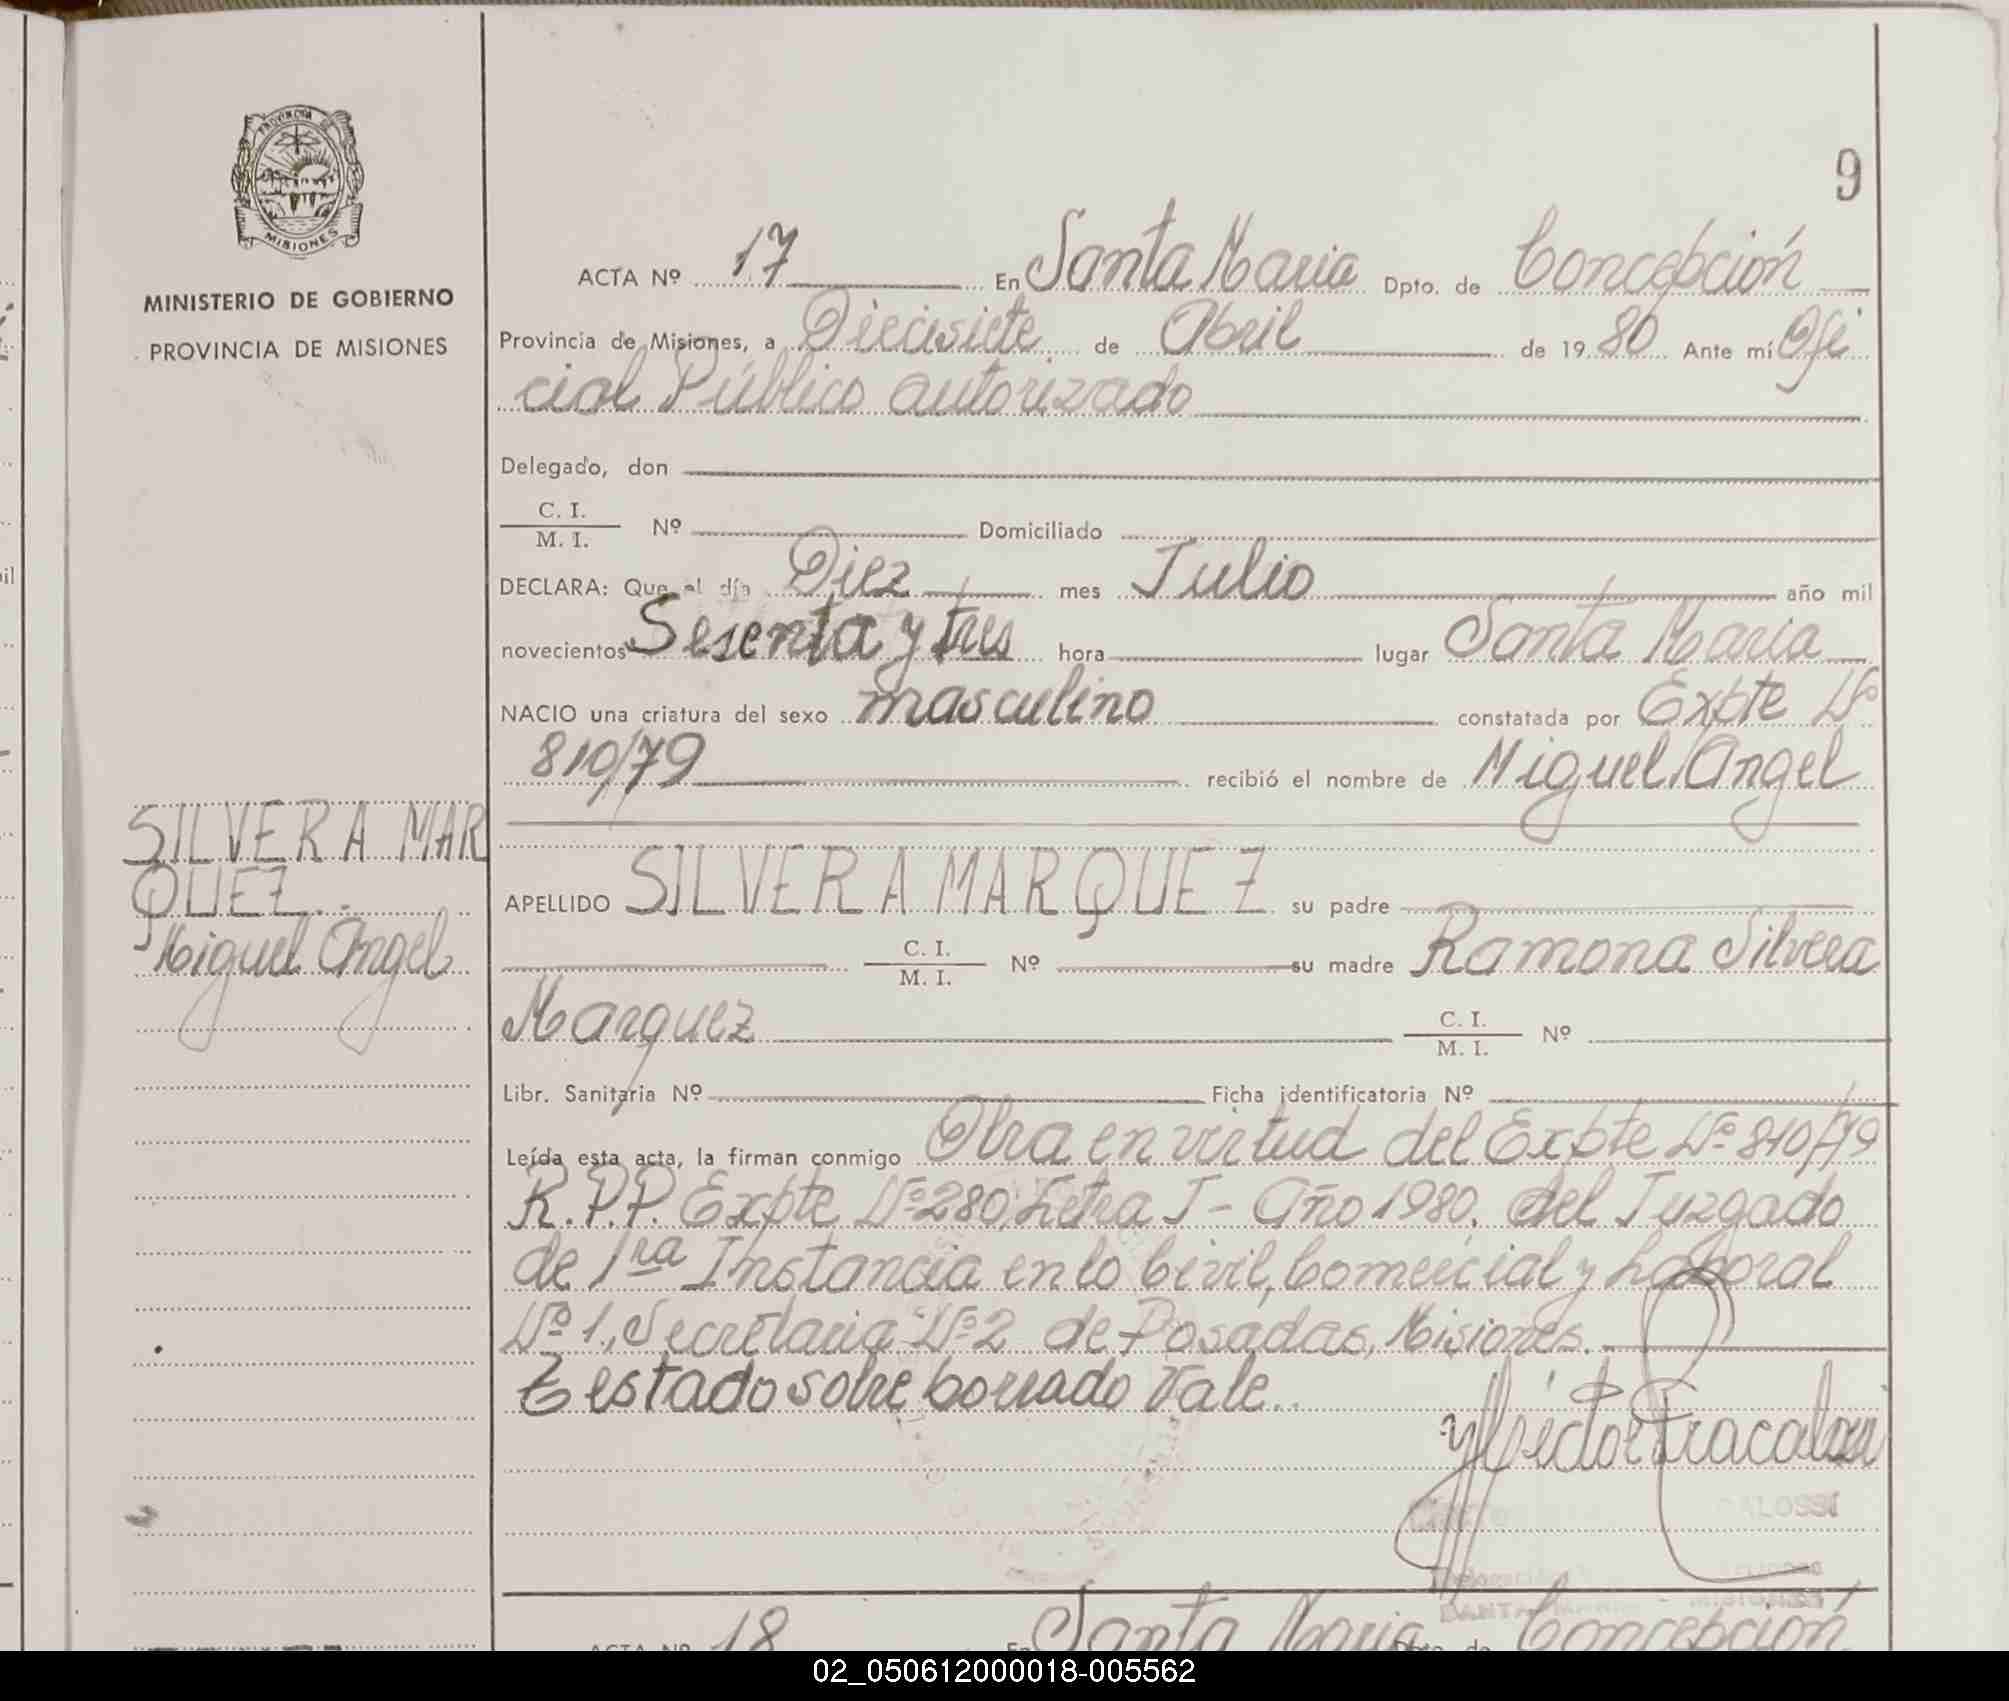 9
PROVINCIA DE
MISIONES
MINISTERIO DE GOBIERNO
PROVINCIA DE MISIONES
ACTA Nº 17 En Santa Maria Dpto. de Concepción
Provincia de Misiones, a Diecisiete de Abril de 1980 Ante mí Ofi
cial Público autorizado
Delegado, don
C. I.
M. I. Nº Domiciliado
DECLARA: Que el día Diez mes Julio año mil
novecientos Sesenta y tres hora lugar Santa Maria
NACIO una criatura del sexo masculino constatada por Expte Nº
810/79 recibió el nombre de Miguel Angel
SILVERA MAR
QUEZ..
Miguel Angel
APELLIDO SILVERA MARQUEZ su padre
C. I.
M. I. Nº su madre Ramona Silvera
Marquez C. I.
M. I. Nº
Libr. Sanitaria Nº Ficha identificatoria Nº
Leída esta acta, la firman conmigo Obra en virtud del Expte Nº 810/79
R.P.P. Expte Nº 280, Letra J- Año 1980. del Juzgado
de 1ra Instancia en lo Civil, Comercial y Laboral
Nº 1., Secretaria Nº 2 de Posadas, Misiones.
Testado sobre borrado Vale..
ALOSSI
SANTA MARIA - MISIONES
ACTA Nº 18 En Santa Maria Dpto. de Concepción
02_050612000018-005562